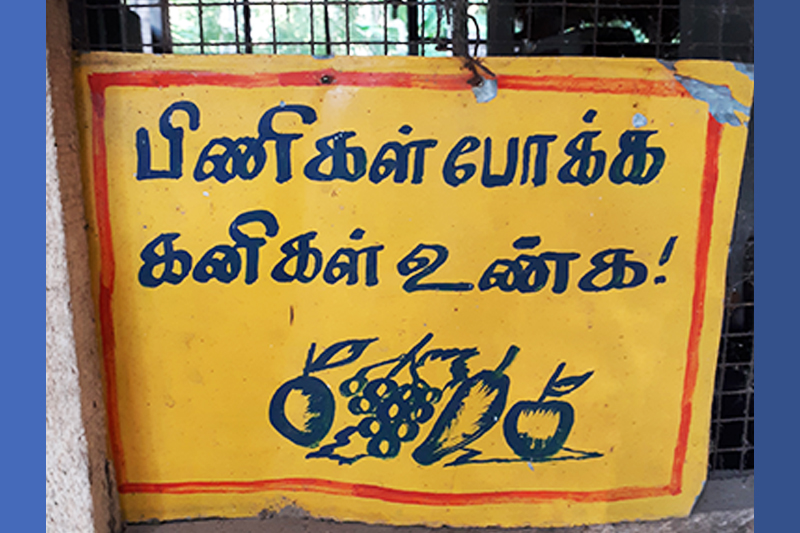 பிணிகள் போக்க
கனிகள் உண்க!